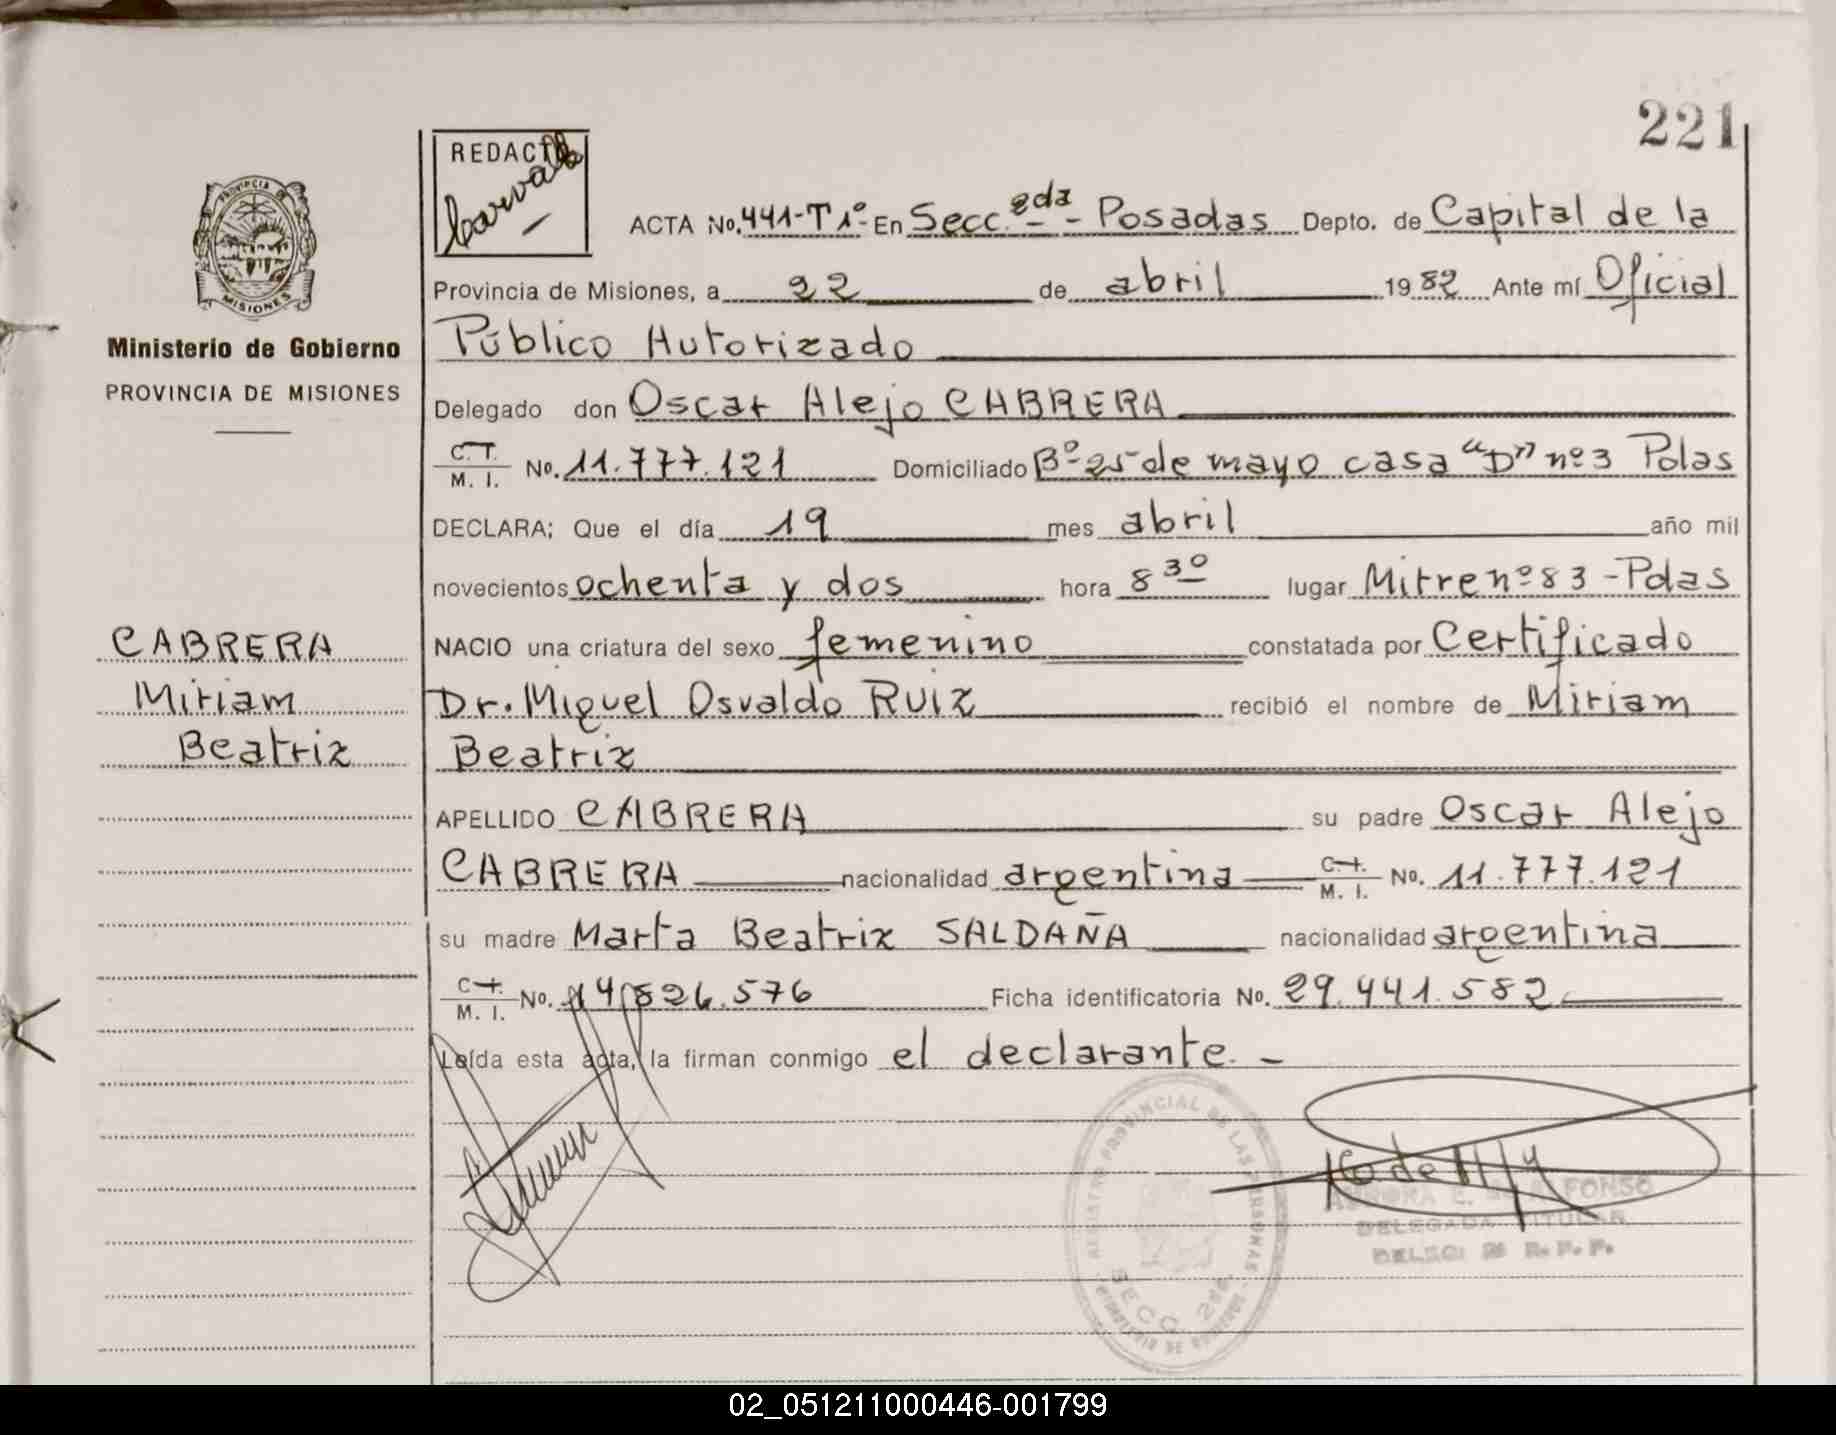 221
REDACTO
ACTA No. 441-T 1º- En Secc. 2da - Posadas Depto. de Capital de la
PROVINCIA DE MISIONES
Provincia de Misiones, a 22 de abril 1982 Ante mí Oficial
Ministerio de Gobierno
PROVINCIA DE MISIONES
Público Autorizado
Delegado don Oscar Alejo CABRERA
C.T. M. I. No. 11.777.121 Domiciliado Bº 25 de mayo casa "D" nº 3 Pdas
DECLARA; Que el día 19 mes abril año mil
novecientos ochenta y dos hora 8 30 lugar Mitre nº 83 - Pdas
CABRERA
Miriam
Beatriz
NACIO una criatura del sexo femenino constatada por Certificado
Dr. Miguel Osvaldo RUIZ recibió el nombre de Miriam
Beatriz
APELLIDO CABRERA su padre Oscar Alejo
CABRERA nacionalidad argentina C.T. M. I. No. 11.777.121
su madre Marta Beatriz SALDAÑA nacionalidad argentina
C.T. M. I. No. 14.826.576 Ficha identificatoria No. 29.441.582
Leída esta acta, la firman conmigo el declarante. -
REGISTRO PROVINCIAL DE LAS PERSONAS
SECC. 2da
MINISTERIO DE GOBIERNO
E. ALFONSO
DELEGADA TITULAR
02_051211000446-001799